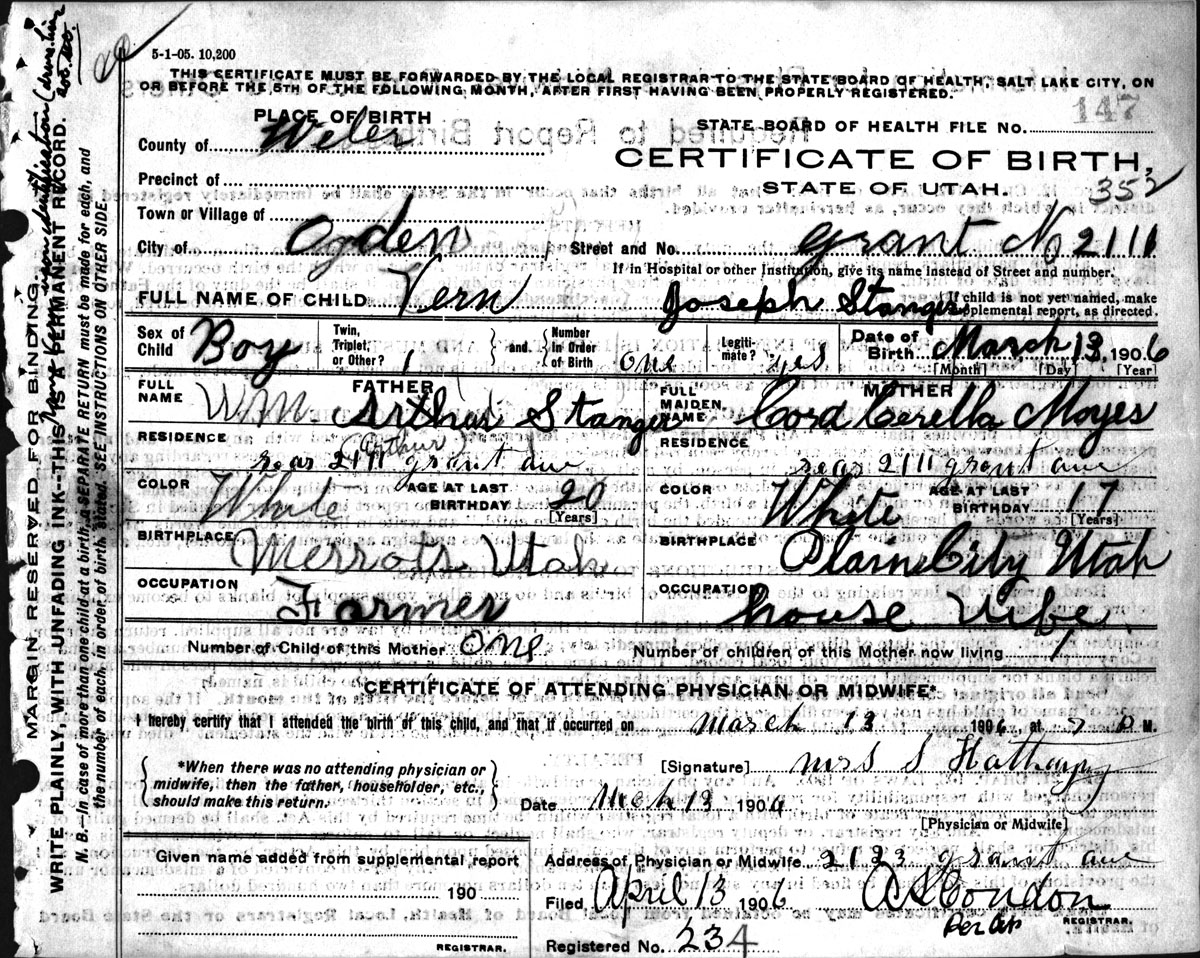 5-1-05. 10,200
THIS CERTIFICATE MUST BE FORWARDED BY THE LOCAL REGISTRAR TO THE STATE BOARD OF HEALTH, SALT LAKE CITY, ON
OR BEFORE THE 5TH OF THE FOLLOWING MONTH, AFTER FIRST HAVING BEEN PROPERLY REGISTERED.
147
PLACE OF BIRTH
STATE BOARD OF HEALTH FILE NO.
County of Weber
CERTIFICATE OF BIRTH,
Precinct of
STATE OF UTAH. 352
Town or Village of
City of Ogden Street and No. Grant No 2111
If in Hospital or other Institution, give its name instead of Street and number.
FULL NAME OF CHILD Vern Joseph Stanger
If child is not yet named, make
supplemental report, as directed.
Sex of Child Boy Twin, Triplet, or Other? 1 and. Number in Order of Birth one Legitimate? yes Date of Birth March 13, 1906
[Month] [Day] [Year]
FATHER
FULL NAME Wm. Arthur Stanger
Arthur
RESIDENCE rear 2111 grant ave
COLOR White AGE AT LAST BIRTHDAY 20
[Years]
BIRTHPLACE Merrots, Utah
OCCUPATION Farmer
MOTHER
FULL MAIDEN NAME Cord Cerella Moyes
RESIDENCE rear 2111 grant ave
COLOR White AGE AT LAST BIRTHDAY 17
[Years]
BIRTHPLACE Plain City Utah
OCCUPATION house Wife
Number of Child of this Mother one Number of children of this Mother now living 1
CERTIFICATE OF ATTENDING PHYSICIAN OR MIDWIFE*
I hereby certify that I attended the birth of this child, and that it occurred on march 13 1906, at 7 P M.
*When there was no attending physician or
midwife, then the father, householder, etc.,
should make this return.
[Signature] mrs S Hathaway
Date Mch 13 1906
[Physician or Midwife]
Given name added from supplemental report
190
REGISTRAR.
Address of Physician or Midwife 2123 grant ave
Filed April 13 1906 A S Condon
Per
REGISTRAR.
Registered No. 234
MARGIN RESERVED FOR BINDING.
WRITE PLAINLY, WITH UNFADING INK--THIS IS A PERMANENT RECORD.
N. B.—In case of more than one child at a birth, a SEPARATE RETURN must be made for each, and
the number of each, in order of birth, stated. SEE INSTRUCTIONS ON OTHER SIDE.